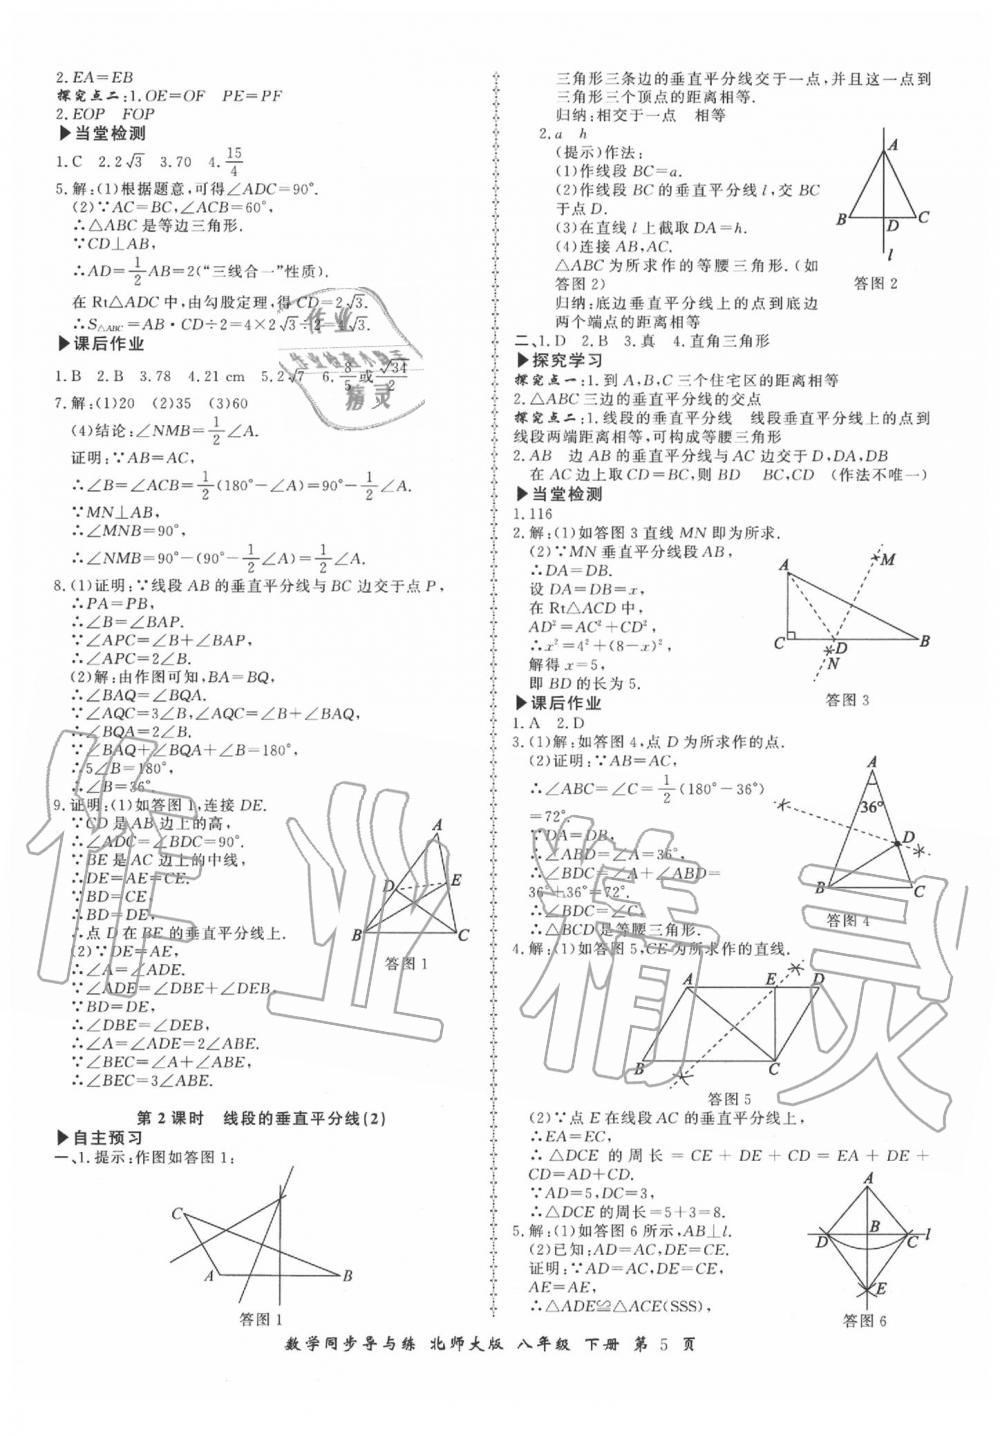 2. EA=EB
探究点二:1. OE=OF　PE=PF
2. EOP　FOP
▶当堂检测
1. C　2. 2√3　3. 70　4. 15/4
5. 解:(1)根据题意,可得∠ADC=90°.
(2)∵AC=BC,∠ACB=60°,
∴△ABC是等边三角形.
∵CD⊥AB,
∴AD=1/2AB=2("三线合一"性质).
在Rt△ADC中,由勾股定理,得CD=2√3.
∴S△ABC=AB·CD÷2=4×2√3÷2=4√3.
▶课后作业
1. B　2. B　3. 78　4. 21 cm　5. 2√7　6. 8/5或√34/2
7. 解:(1)20　(2)35　(3)60
(4)结论:∠NMB=1/2∠A.
证明:∵AB=AC,
∴∠B=∠ACB=1/2(180°-∠A)=90°-1/2∠A.
∵MN⊥AB,
∴∠MNB=90°,
∴∠NMB=90°-(90°-1/2∠A)=1/2∠A.
8. (1)证明:∵线段AB的垂直平分线与BC边交于点P,
∴PA=PB,
∴∠B=∠BAP.
∵∠APC=∠B+∠BAP,
∴∠APC=2∠B.
(2)解:由作图可知,BA=BQ,
∴∠BAQ=∠BQA.
∵∠AQC=3∠B,∠AQC=∠B+∠BAQ,
∴∠BQA=2∠B.
∵∠BAQ+∠BQA+∠B=180°,
∴5∠B=180°,
∴∠B=36°.
9. 证明:(1)如答图1,连接DE.
∵CD是AB边上的高,
∴∠ADC=∠BDC=90°.
∵BE是AC边上的中线,
∴DE=AE=CE.
∵BD=CE,
∴BD=DE,
∴点D在BE的垂直平分线上.
(2)∵DE=AE,
∴∠A=∠ADE.
∵∠ADE=∠DBE+∠DEB,
∵BD=DE,
∴∠DBE=∠DEB,
∴∠A=∠ADE=2∠ABE.
∵∠BEC=∠A+∠ABE,
∴∠BEC=3∠ABE.
A
D
E
B
C
答图1
第2课时　线段的垂直平分线(2)
▶自主预习
一、1. 提示:作图如答图1:
C
A
B
答图1
三角形三条边的垂直平分线交于一点,并且这一点到
三角形三个顶点的距离相等.
归纳:相交于一点　相等
2. a　h
(提示)作法:
(1)作线段BC=a.
(2)作线段BC的垂直平分线l,交BC
于点D.
(3)在直线l上截取DA=h.
(4)连接AB,AC.
△ABC为所求作的等腰三角形.(如
答图2)
归纳:底边垂直平分线上的点到底边
两个端点的距离相等
A
B
D
C
l
答图2
二、1. D　2. B　3. 真　4. 直角三角形
▶探究学习
探究点一:1. 到A,B,C三个住宅区的距离相等
2. △ABC三边的垂直平分线的交点
探究点二:1. 线段的垂直平分线　线段垂直平分线上的点到
线段两端距离相等,可构成等腰三角形
2. AB　边AB的垂直平分线与AC边交于D,DA,DB
在AC边上取CD=BC,则BD　BC,CD　(作法不唯一)
▶当堂检测
1. 116
2. 解:(1)如答图3直线MN即为所求.
(2)∵MN垂直平分线段AB,
∴DA=DB.
设DA=DB=x,
在Rt△ACD中,
AD²=AC²+CD²,
∴x²=4²+(8-x)²,
解得x=5,
即BD的长为5.
A
M
C
D
B
N
答图3
▶课后作业
1. A　2. D
3. (1)解:如答图4,点D为所求作的点.
(2)证明:∵AB=AC,
∴∠ABC=∠C=1/2(180°-36°)
=72°.
∵DA=DB,
∴∠ABD=∠A=36°,
∴∠BDC=∠A+∠ABD=
36°+36°=72°.
∴∠BDC=∠C,
∴△BCD是等腰三角形.
A
36°
D
B
C
答图4
4. 解:(1)如答图5,CE为所求作的直线.
A
E
D
B
C
答图5
(2)∵点E在线段AC的垂直平分线上,
∴EA=EC,
∴△DCE的周长=CE+DE+CD=EA+DE+
CD=AD+CD.
∵AD=5,DC=3,
∴△DCE的周长=5+3=8.
5. 解:(1)如答图6所示,AB⊥l.
(2)已知:AD=AC,DE=CE.
证明:∵AD=AC,DE=CE,
AE=AE,
∴△ADE≌△ACE(SSS),
A
B
l
D
C
E
答图6
数学同步导与练　北师大版　八年级　下册　第 5 页
作业
精灵
作业精灵